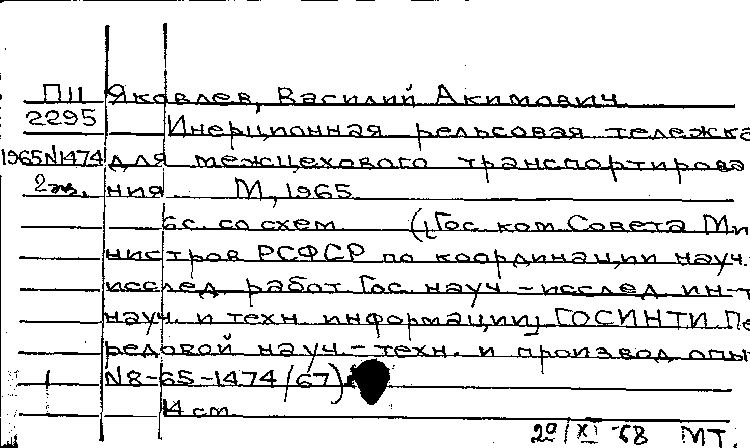 П11 Яковлев, Василий Акимович
2295 Инерционная рельсовая тележка
1965N1474 для межцехового транспортирова
2 эк. ния М, 1965
6 с. со схем. ([Гос. ком. Совета Ми
нистров РСФСР по координации науч.
исслед. работ Гос. науч.-исслед. ин-т
науч. и техн. информации] ГОСИНТИ Пе
редовой науч.-техн. и производ. опы
N8-65-1474/67)
14 см.
29/XI-68 МТ.